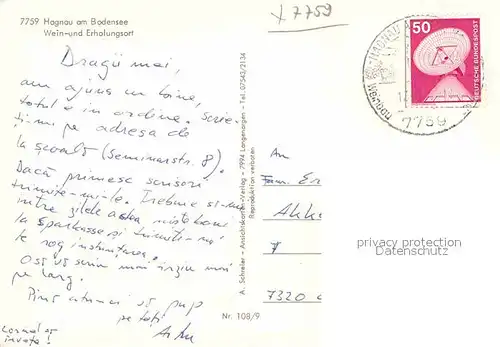 7759 Hagnau am Bodensee
Wein-und Erholungsort
7759
Dragii mei,
am ajuns cu bine,
totul în ordine. Scrie-
ți-mi pe adresa de
la școală (Seminarstr. 8).
Dacă primesc scrisori
trimite-mi-le. Trebuie să-mi
intre zilele astea niște bani
la Sparkasse și trimite-mi
te rog înștiințarea.
O să vă scriu mai târziu mai
pe larg.
Până atunci vă pup
pe toți
A. Schreier - Ansichtskarten-Verlag - 7994 Langenargen - Tel. 07543/2134
Reproduktion verboten
Nr. 108/9
50
DEUTSCHE BUNDESPOST
HAGNAU
7759
An
Fam.
7320
privacy protection
Datenschutz